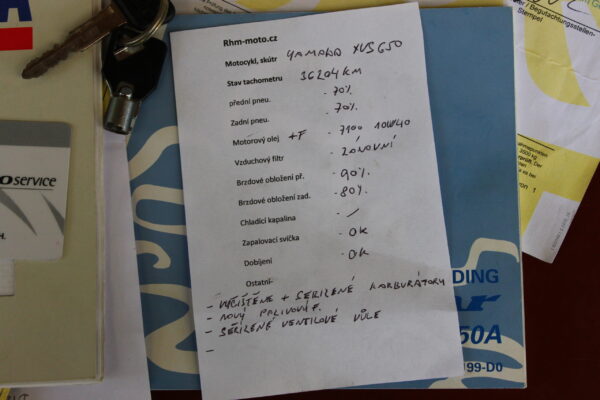 Rhm-moto.cz
Motocykl, skútr YAMAHA XVS 650
Stav tachometru 36204 KM
přední pneu. - 70%
Zadní pneu. - 70%
Motorový olej +F - 7100 10W40
Vzduchový filtr - ZÁNOVNÍ
Brzdové obložení př. - 90%
Brzdové obložení zad. - 80%
Chladící kapalina - /
Zapalovací svíčka - OK
Dobíjení - OK
Ostatní-
- VYČIŠTĚNÉ + SEŘÍZENÉ KARBURÁTORY
- NOVÝ PALIVOVÝ F.
- SEŘÍZENÉ VENTILOVÉ VŮLE
-
service
H.
DING
ar
50A
199-D0
/ Begutachtungsstellen-
Stempel
3500 kg
von 1